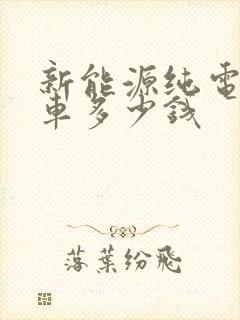 新能源纯電
車多少錢
落葉纷飛